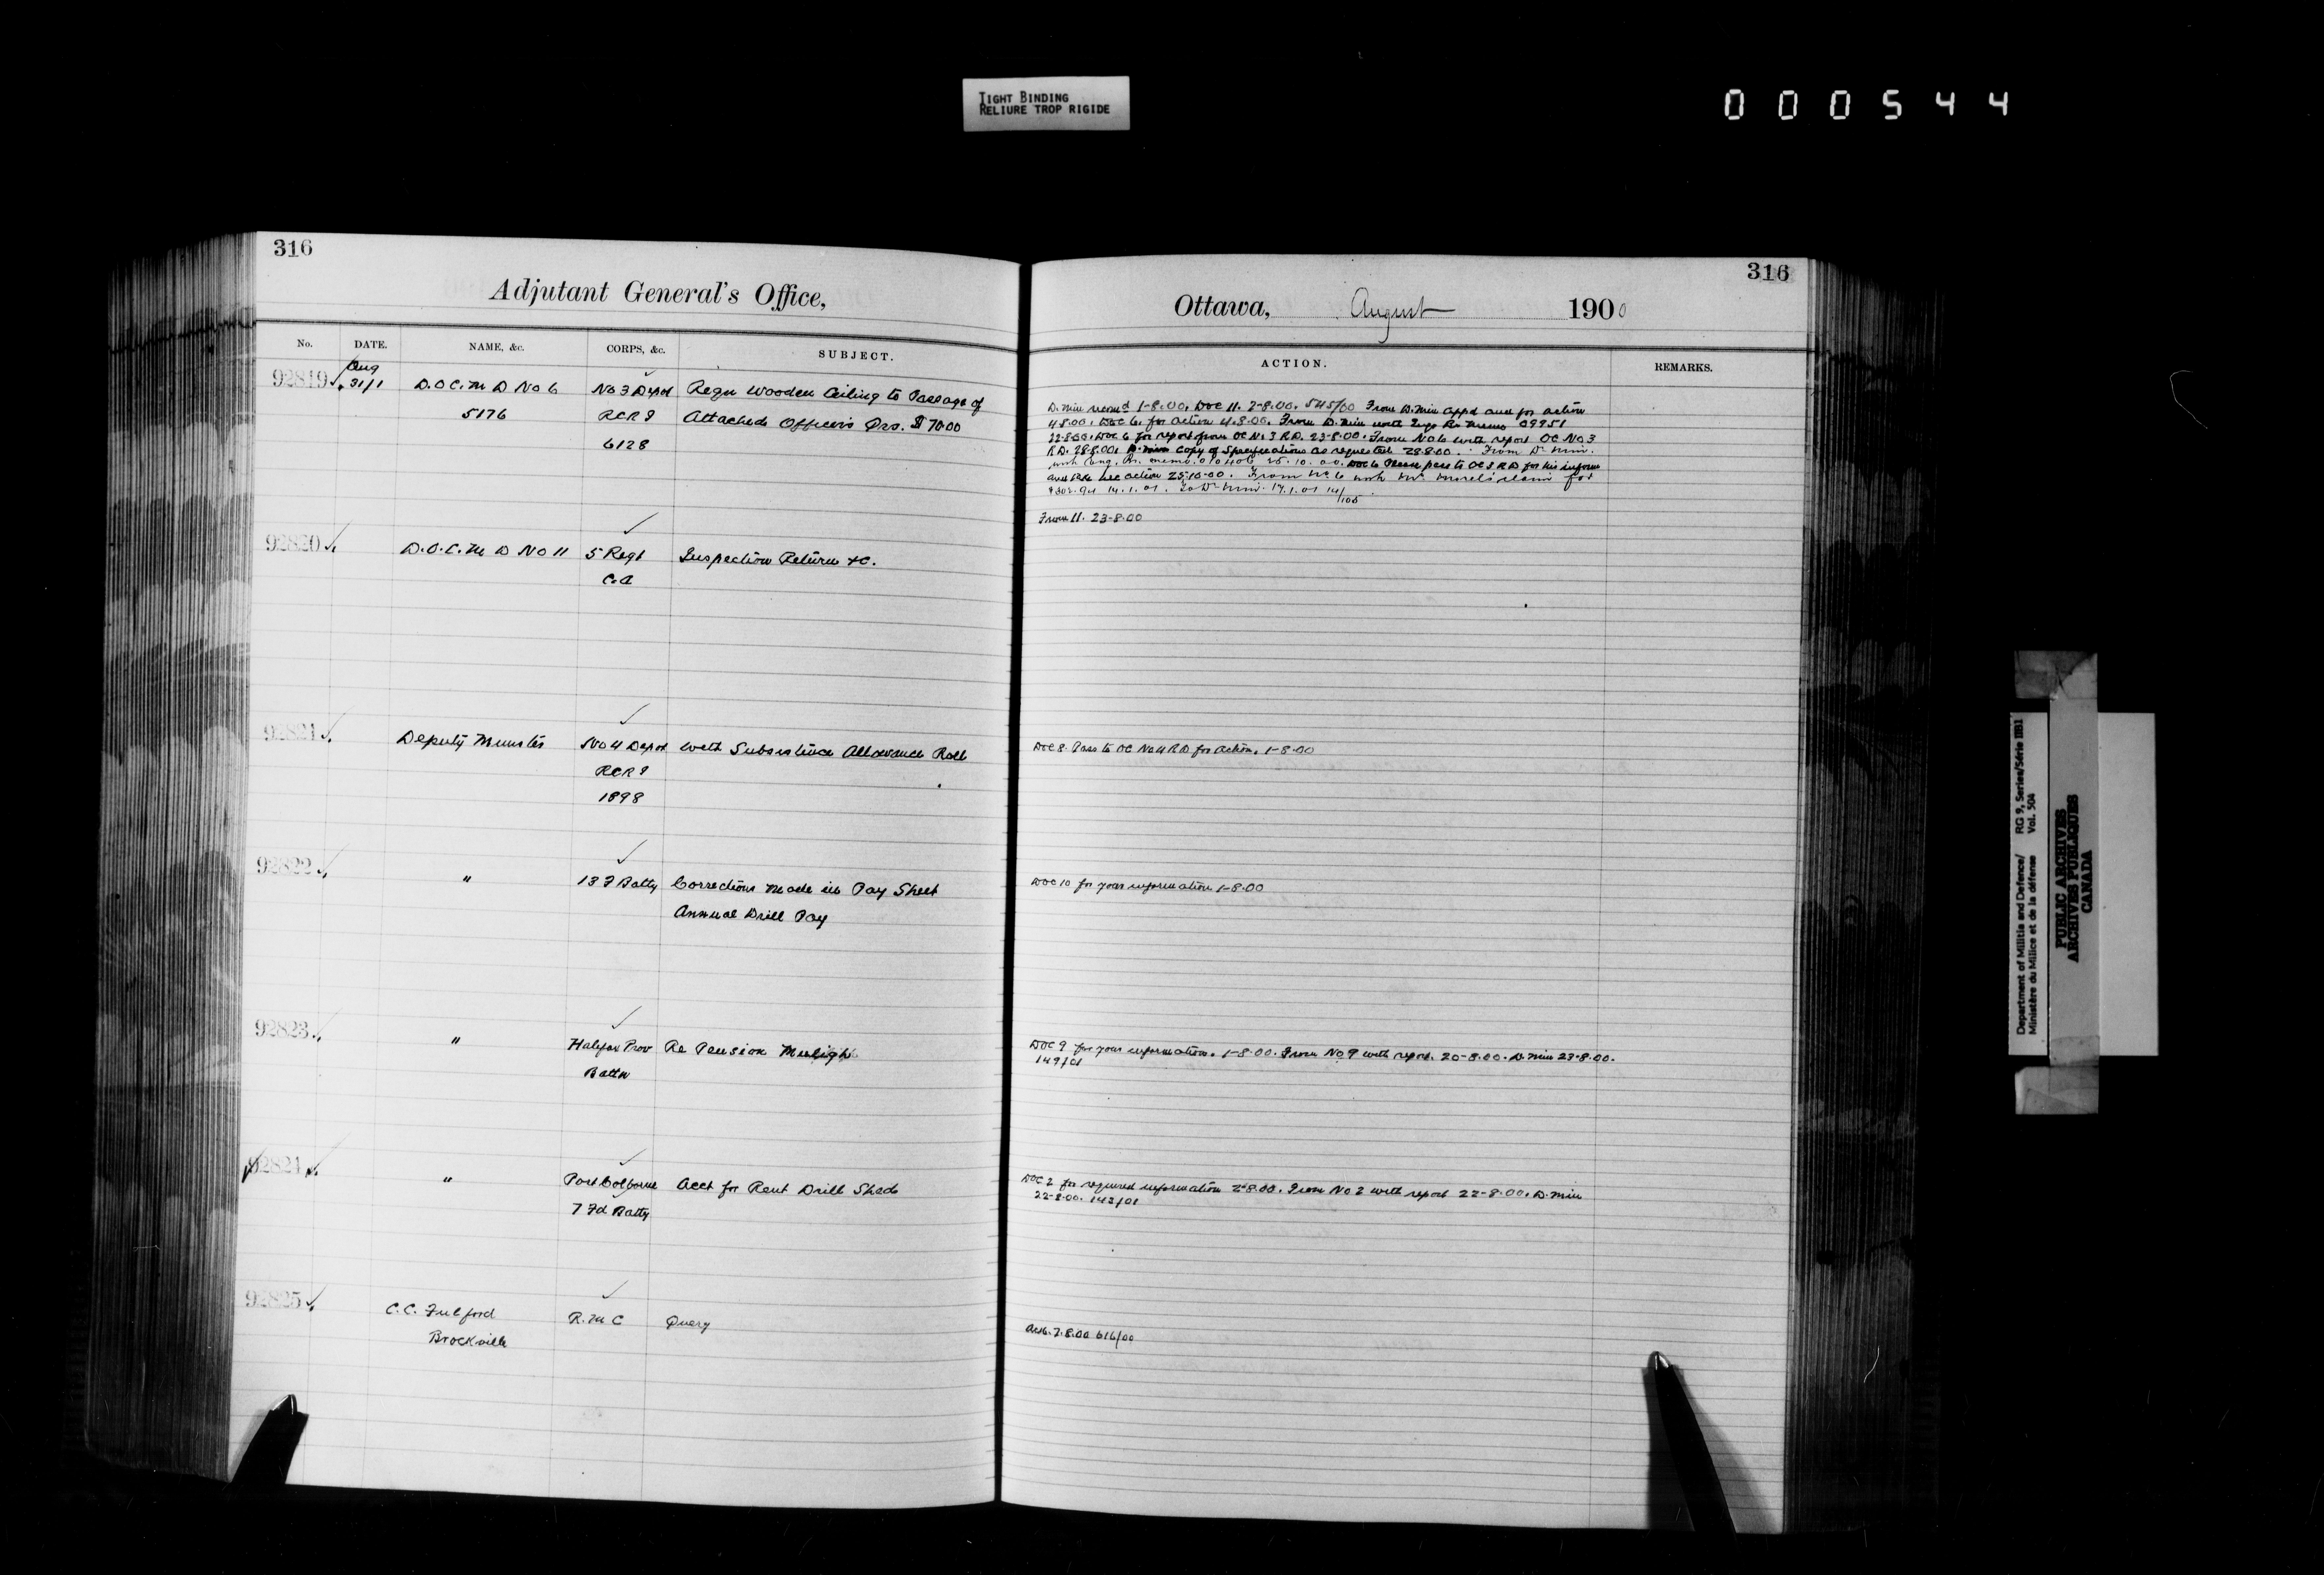 TIGHT BINDING
RELIURE TROP RIGIDE
000544
316
Adjutant General's Office,
No. DATE. NAME, &c. CORPS, &c. SUBJECT.
Aug
92819 31/1 D.O.C. M D No 6 No 3 Depot Regn Wooden Ceiling to Passage of
5176 RCRI Attached Officers Qrs. $70.00
6128
92820 D.O.C. M D No 11 5 Regt Inspection Return &c.
C.A
92821 Deputy Minister No 4 Depot with Subsistence Allowance Roll
RCRI
1898
92822 " 13 F Batty Corrections made in Pay Sheet
Annual Drill Pay
92823 " Halifax Prov Re Pension
Battn
92824 " Port Colborne Acct for Rent Drill Shed
7 Fd Batty
92825 C.C. Fulford R.M.C Query
Brockville
316
Ottawa, August 1900
ACTION. REMARKS.
D. Min recomd 1-8.00. DOC 11. 2-8.00. 545/00 From D. Min appd and for action
4.8.00. DOC 6. for action 4.8.00. From D. Min with Engr Br. Memo 09951
22-8.00. DOC 6 for report from OC No 3 RD. 23-8.00. From No 6 with report OC No 3
RD. 28.8.00. D. Min Copy of Specifications as requested 28.8.00. From D. Min.
with Eng. Br. memo. 010406 25.10.00. DOC 6 Please pass to OC 3 RD for his inform
and take nec action 25.10.00. From No 6 with Mr claim for
14.1.01. To D. Min. 17.1.01 14/105
From 11. 23-8.00
DOC 8. Pass to OC No 4 RD for action. 1-8.00
DOC 10 for your information 1-8.00
DOC 9 for your information. 1-8.00. From No 9 with report. 20-8.00. D. Min 23-8.00.
149/01
DOC 2 for required information 2-8.00. From No 2 with report 22-8.00. D. Min
22-8.00. 142/01
Ack. 7.8.00 616/00
Department of Militia and Defence/ RG 9, Series/Série IIB1
Ministère du Milice et de la défense Vol. 504
PUBLIC ARCHIVES
ARCHIVES PUBLIQUES
CANADA